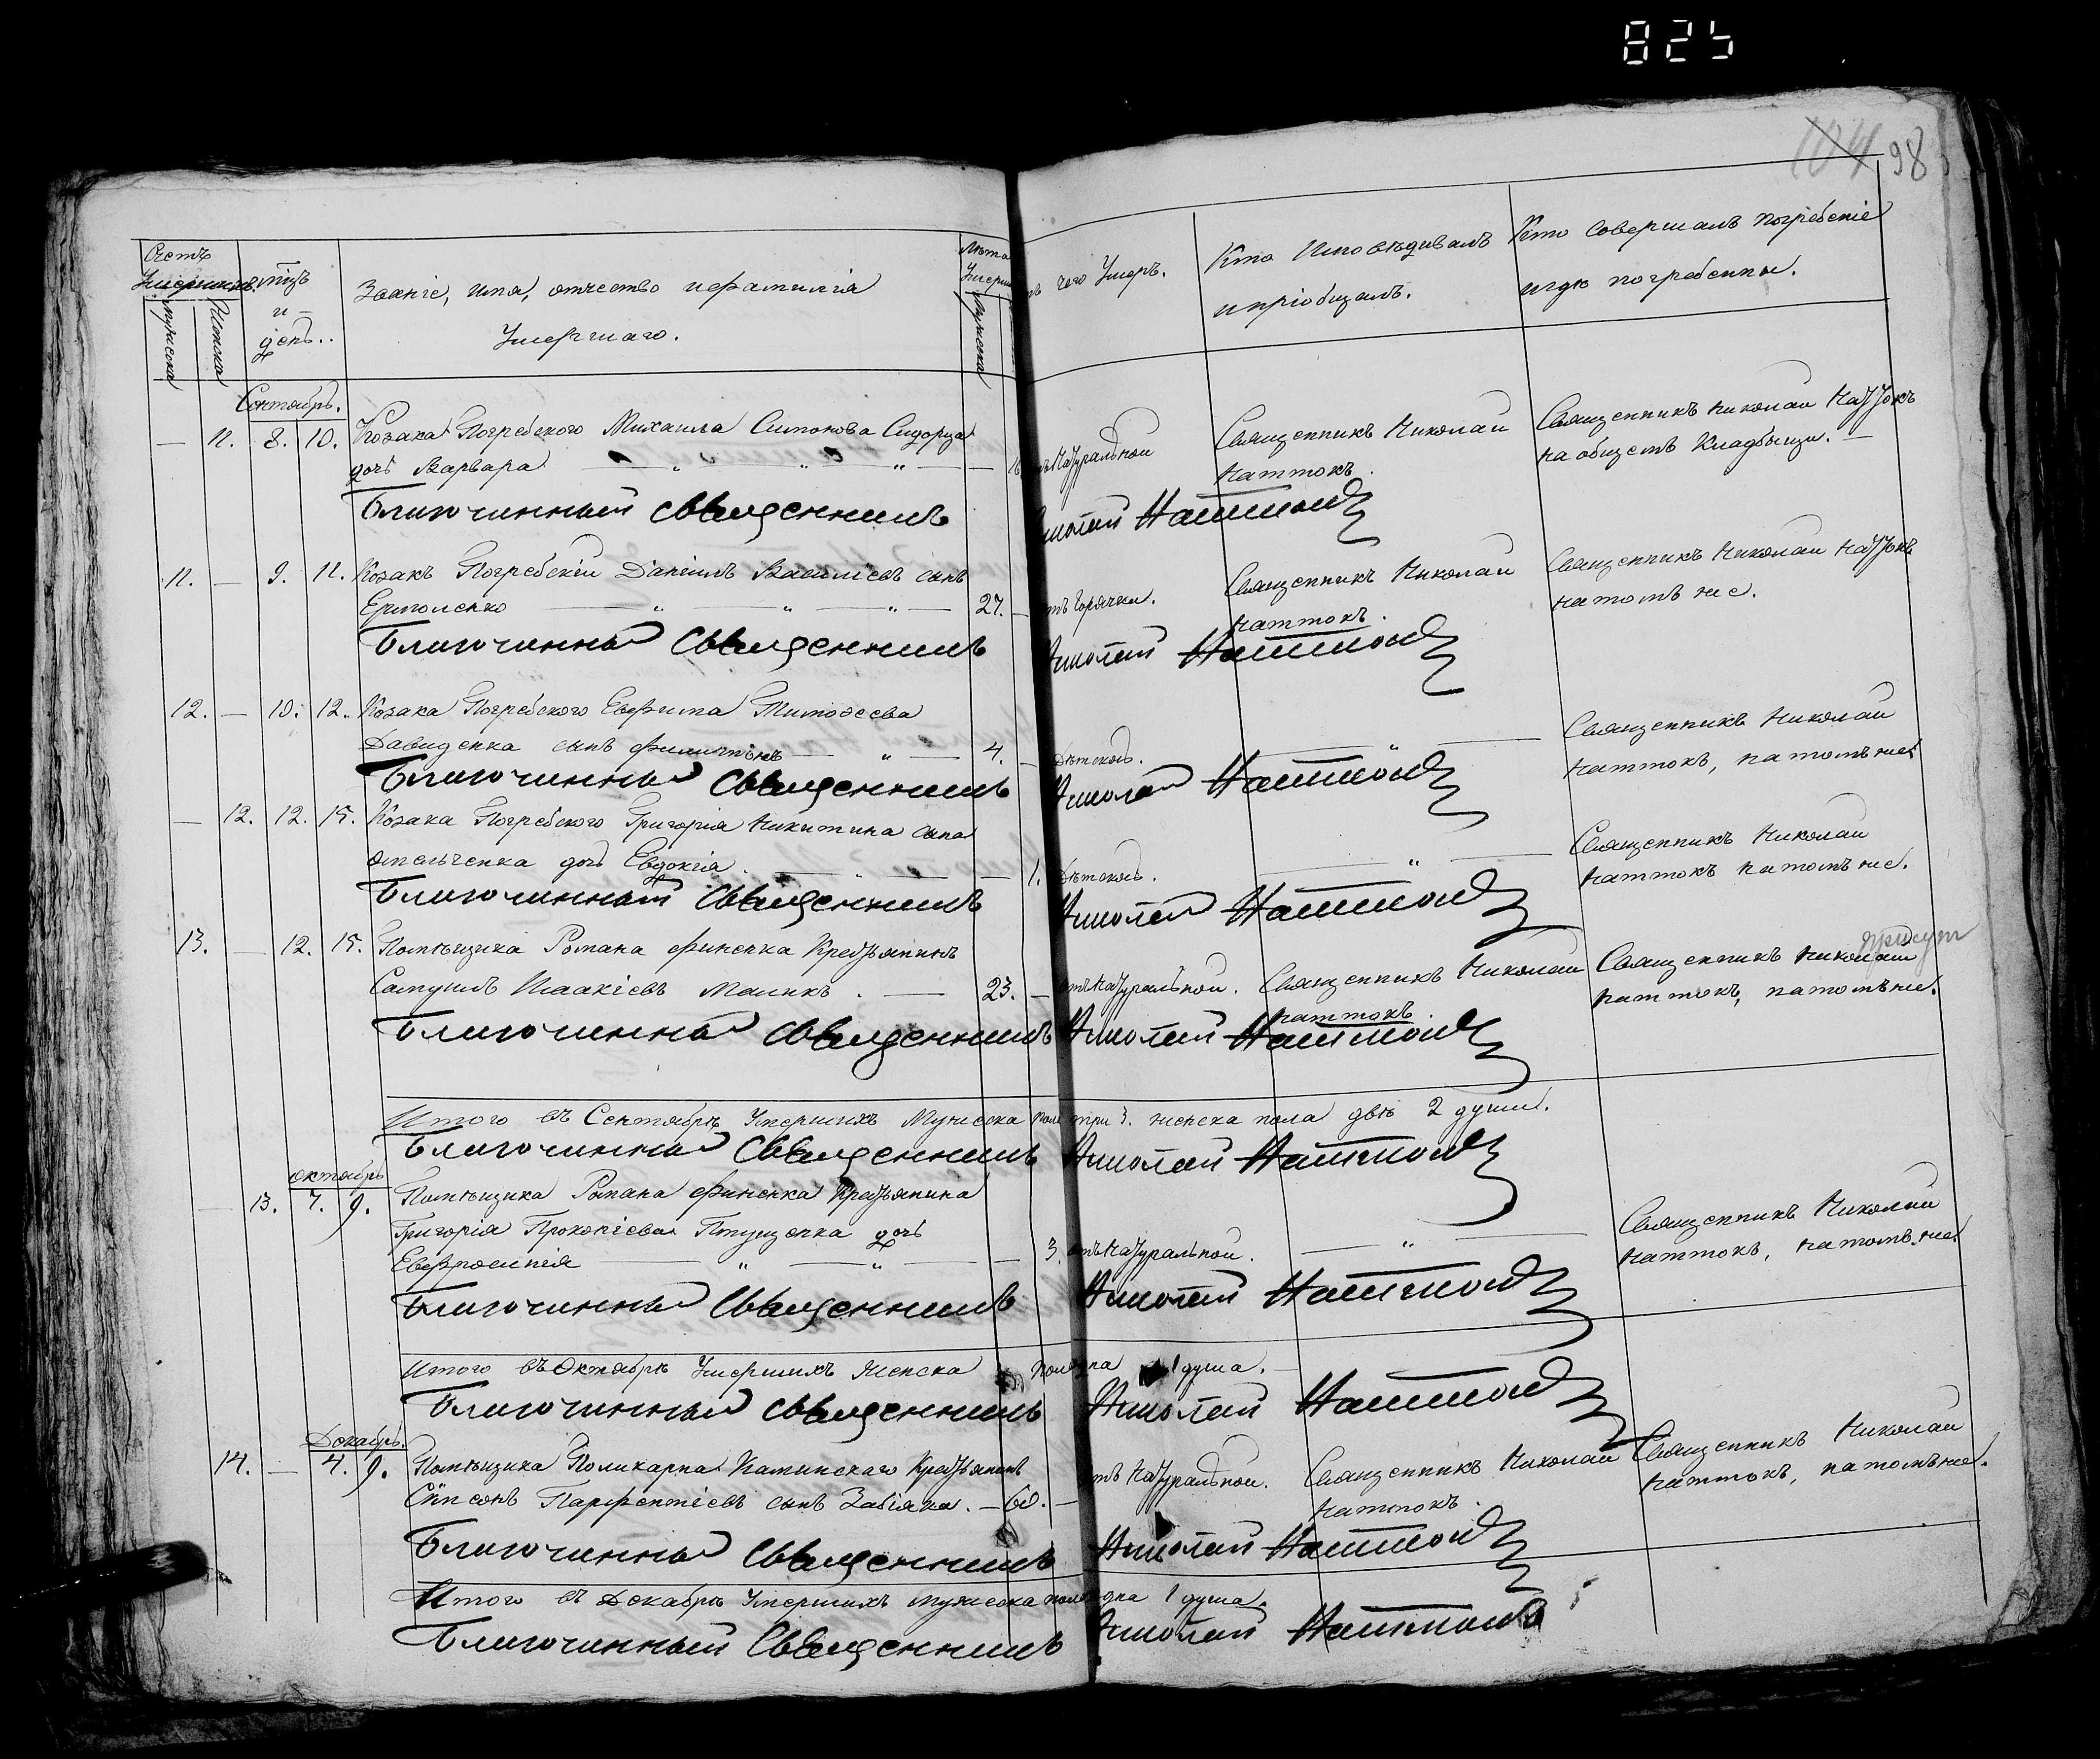 825
104 98
Счетъ
Умершихъ.
мужеска
Женска
м̃цъ
и
день.
Званіе, имя, отчество ифамилія
Умершаго.
Лѣта
мужеска
чего Умеръ.
Кто Исповѣдивалъ
ипріобщалъ.
Кто Совершалъ погребеніе
игдѣ погребенны.
Сентябрь.
— 11. 8. 10. Козака Погребского Михаила Симонова Сидорца
дочь Варвара — " — " — " — —
Натуральной
Священникъ Николай
Наттокъ.
Священникъ Николай Наттокъ
на общемъ Кладбищи. —
Благочинный Священникъ Николай Наттокъ
11. — 9. 11. Козакъ Погребскій Даніилъ Василіевъ сынъ
Ермоленко — " — " — " — 27. —
отъ Горячки.
Священникъ Николай
Наттокъ.
Священникъ Николай Наттокъ
натомъ же.
Благочинный Священникъ Николай Наттокъ
12. — 10. 12. Козака Погребского Евфима Тимофеева
Давиденка сынъ Филимонъ — " — 4. —
Дѣтской.
— " —
Священникъ Николай
Наттокъ, натомъ же.
Благочинный Священникъ Николай Наттокъ
— 12. 12. 15. Козака Погребского Григорія Никитина сына
Омельченка дочь Евдокія. — — — 1.
Дѣтской.
— " —
Священникъ Николай
Наттокъ натомъ же.
Благочинный Священникъ Николай Наттокъ
13. — 12. 15. Помѣщика Романа Финенка Крестьянинъ
Самуилъ Исакіевъ . — 23. —
отъ Натуральной.
Священникъ Николай
Наттокъ.
Священникъ Николай
Наттокъ, натомъ же.
Благочинный Священникъ Николай Наттокъ
Итого въ Сентябрѣ Умершихъ Мужеска пола три 3. женска пола двѣ 2 души.
Благочинный Священникъ Николай Наттокъ
Октябрь
— 13. 7. 9. Помѣщика Романа Финенка Крестьянина
Григорія Прокопіева Птущенка дочь
Евфросинія — " — " — — 3.
отъ Натуральной.
— " —
Священникъ Николай
Наттокъ, натомъ же.
Благочинный Священникъ Николай Наттокъ
Итого въ Октябрѣ Умершихъ Женска пола одна 1 душа.
Благочинный Священникъ Николай Наттокъ
Декабрь.
14. — 4. 9. Помѣщика Поликарпа Каминскаго Крестьянинъ
Симеонъ Парфентіевъ сынъ Забіяка. — 60. —
отъ Натуральной.
Священникъ Николай
Наттокъ.
Священникъ Николай
Наттокъ, натомъ же.
Благочинный Священникъ Николай Наттокъ
Итого въ Декабрѣ Умершихъ мужеска пола одна 1 душа.
Благочинный Священникъ Николай Наттокъ